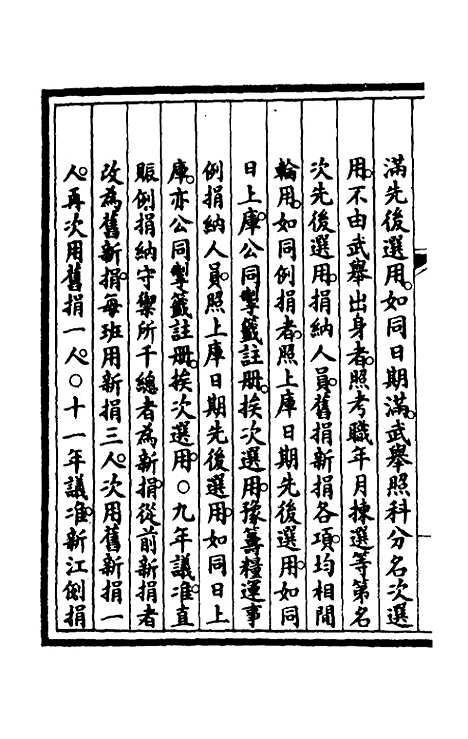 滿先後選用。如同日期滿。武舉照科分名次選
用。不由武舉出身者。照考職年月揀選等第名
次先後選用。捐納人員。舊捐新捐各項。均相閒
輪用。如同例捐者。照上庫日期先後選用。如同
日上庫。公同掣籤註冊。挨次選用。豫籌糧運事
例捐納人員。照上庫日期先後選用。如同日上
庫。亦公同掣籤註冊。挨次選用。○九年議准。直
賑例捐納守禦所千總者為新捐。從前新捐者
改為舊新捐。每班用新捐三人。次用舊新捐一
人。再次用舊捐一人。○十一年議准。新江例捐